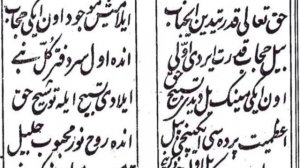 حق تعالی قدرتیدین ایجناب ایلامیش موجود اون ایکی حجاب
بیل حجاب قدرت ایردی اولی انده اول سردفتر کل نبی
اون ایکی مینک ییل دیدی تسبیح حق ایلادی تسبیح ایله توشیح حق
اعظمیت پرده سی ایکینچی بیل انده روح نور محبوب جلیل